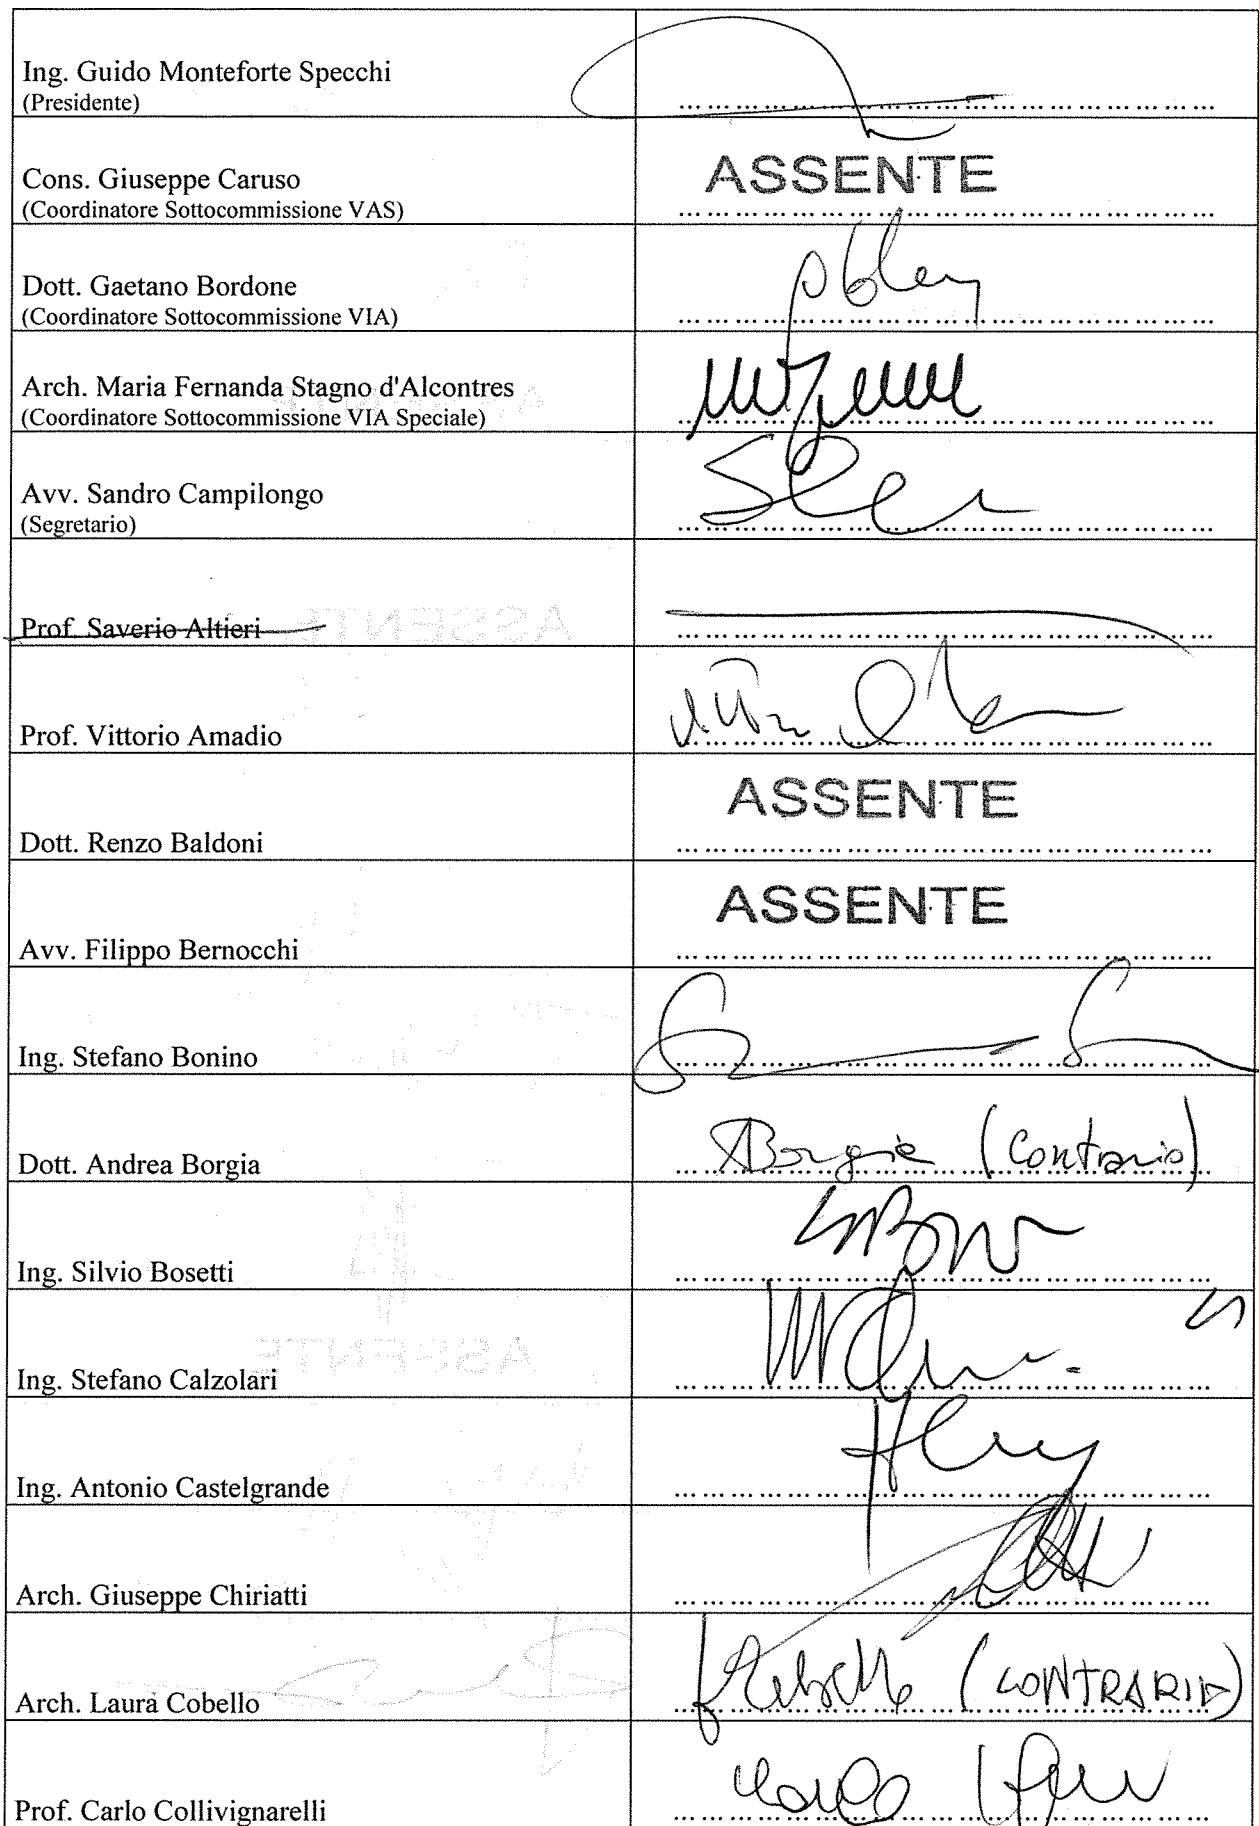 Ing. Guido Monteforte Specchi
(Presidente)
Cons. Giuseppe Caruso
(Coordinatore Sottocommissione VAS)
ASSENTE
Dott. Gaetano Bordone
(Coordinatore Sottocommissione VIA)
Arch. Maria Fernanda Stagno d'Alcontres
(Coordinatore Sottocommissione VIA Speciale)
Avv. Sandro Campilongo
(Segretario)
Prof. Saverio Altieri
Prof. Vittorio Amadio
Dott. Renzo Baldoni
ASSENTE
Avv. Filippo Bernocchi
ASSENTE
Ing. Stefano Bonino
Dott. Andrea Borgia
ABorgia (Contrario)
Ing. Silvio Bosetti
Ing. Stefano Calzolari
Ing. Antonio Castelgrande
Arch. Giuseppe Chiriatti
Arch. Laura Cobello
(CONTRARIA)
Prof. Carlo Collivignarelli